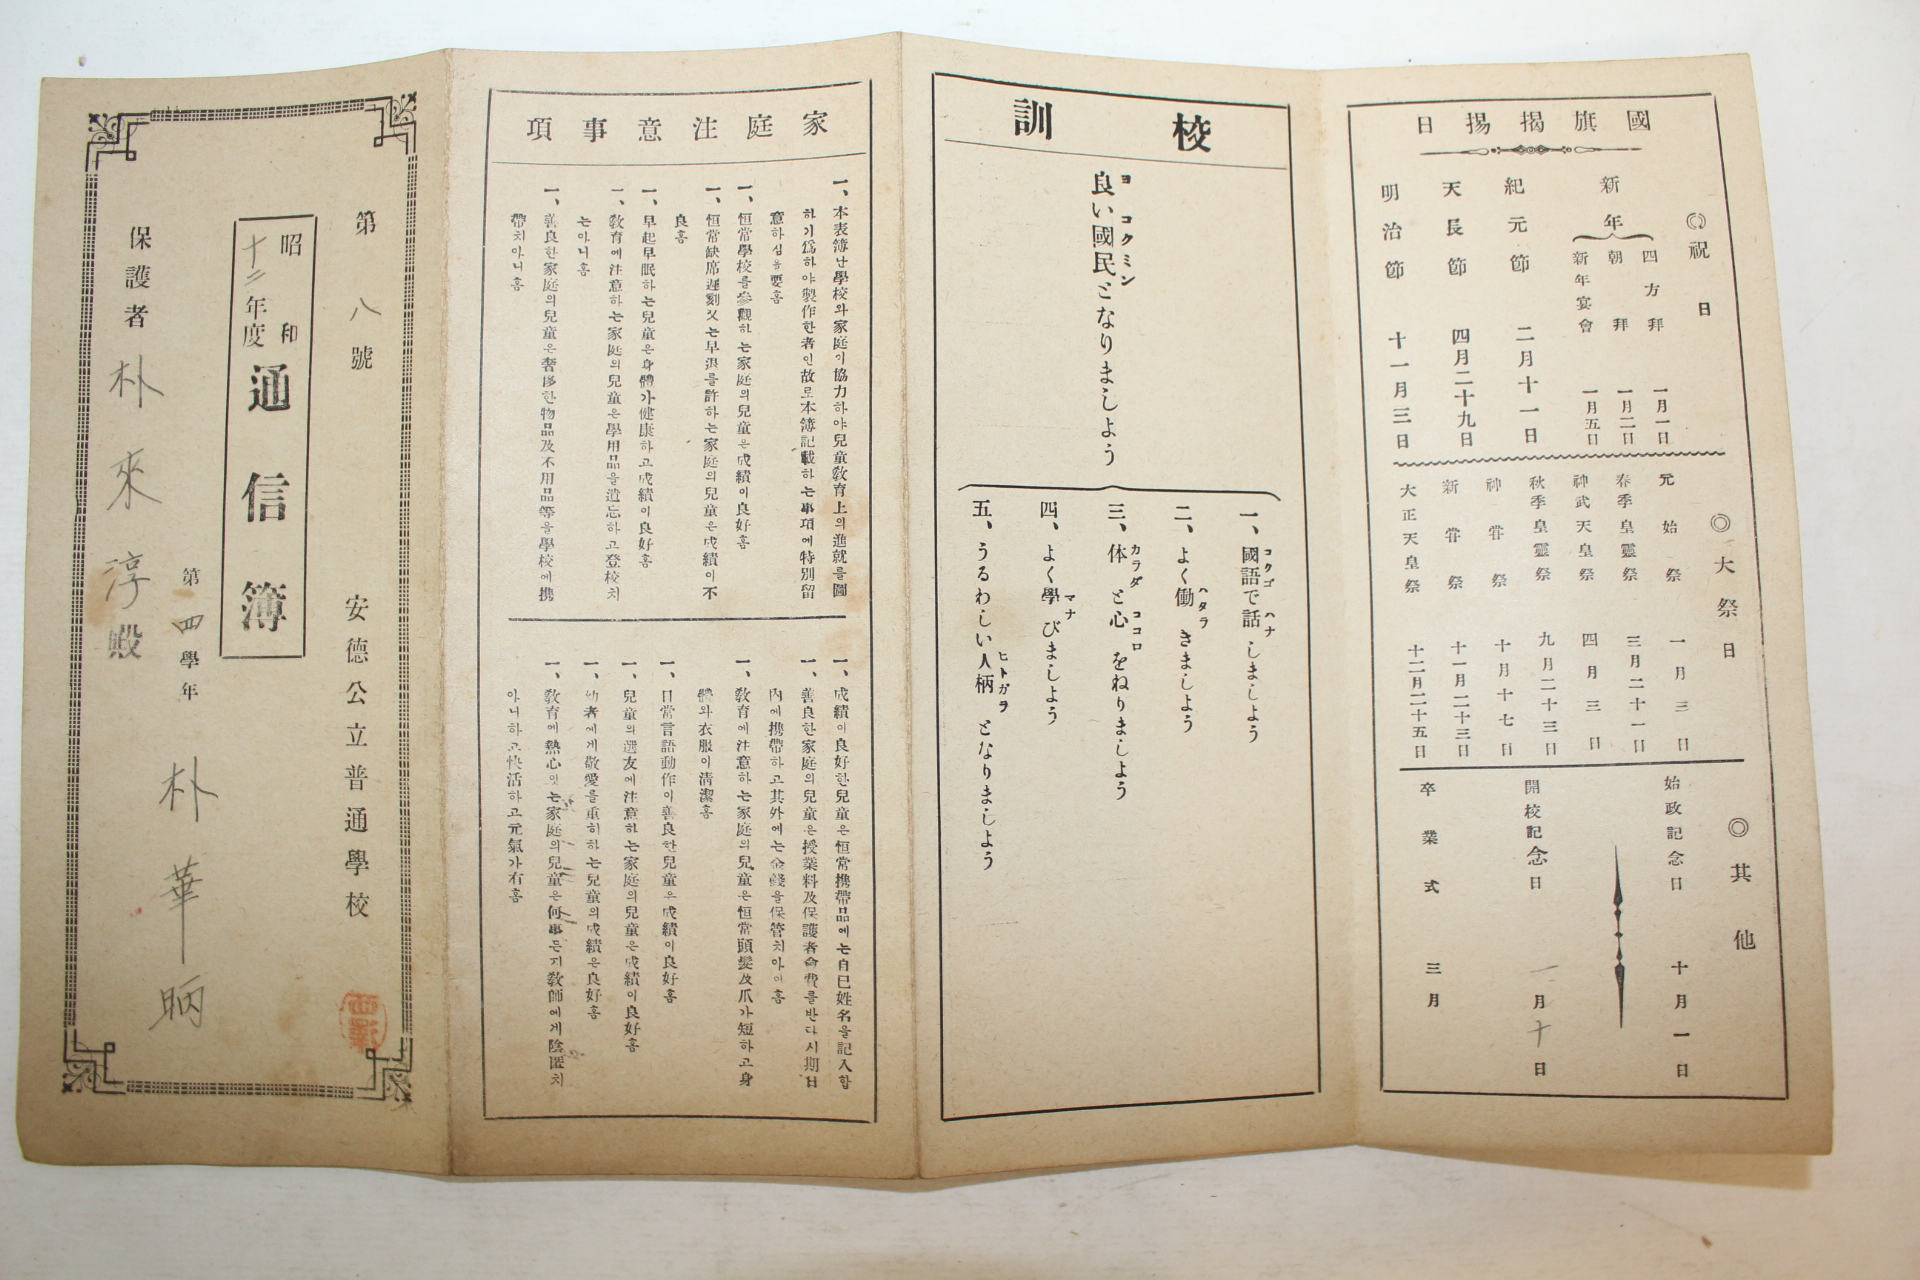 國旗揭揚日
◎祝日
新年
四方拜 一月一日
朝拜 一月二日
新年宴會 一月五日
紀元節 二月十一日
天長節 四月二十九日
明治節 十一月三日
◎大祭日
元始祭 一月三日
春季皇靈祭 三月二十一日
神武天皇祭 四月三日
秋季皇靈祭 九月二十三日
神甞祭 十月十七日
新甞祭 十一月二十三日
大正天皇祭 十二月二十五日
◎其他
始政記念日 十月一日
開校記念日 一月十日
卒業式 三月
校訓
良い國民となりましよう
ヨ コクミン
一、國語で話しましよう
コクゴ ハナ
二、よく働きましよう
ハタラ
三、体と心をねりましよう
カラダ ココロ
四、よく學びましよう
マナ
五、うるわしい人柄となりましよう
ヒトガラ
家庭注意事項
一、本表簿난學校와家庭이協力하야兒童敎育上의進就를圖
하기爲하야製作한者인故로本簿記載하는事項에特別留
意하심을要홈
一、恒常學校를參觀하는家庭의兒童은成績이良好홈
一、恒常缺席遲刻又는早退를許하는家庭의兒童은成績이不
良홈
一、早起早眠하는兒童은身體가健康하고成績이良好홈
一、敎育에注意하는家庭의兒童은學用品을遺忘하고登校치
는아니홈
一、善良한家庭의兒童은奢侈한物品及不用品等을學校에携
帶치아니홈
一、成績이良好한兒童은恒常携帶品에는自己姓名을記入함
一、善良한家庭의兒童은授業料及保護者會費를반다시期日
內에携帶하고其外에는金錢을保管치아이홈
一、敎育에注意하는家庭의兒童은恒常頭髮及爪가短하고身
體와衣服이淸潔홈
一、日常言語動作이善良한兒童은成績이良好홈
一、兒童의選友에注意하는家庭의兒童은成績이良好홈
一、幼者에게敬愛를重히하는兒童의成績은良好홈
一、敎育에熱心잇는家庭의兒童은何事든지敎師에게陰匿치
아니하고快活하고元氣가有홈
第八號
安德公立普通學校
昭和十二年度
通信簿
第四學年 朴華昞
保護者 朴來淳殿